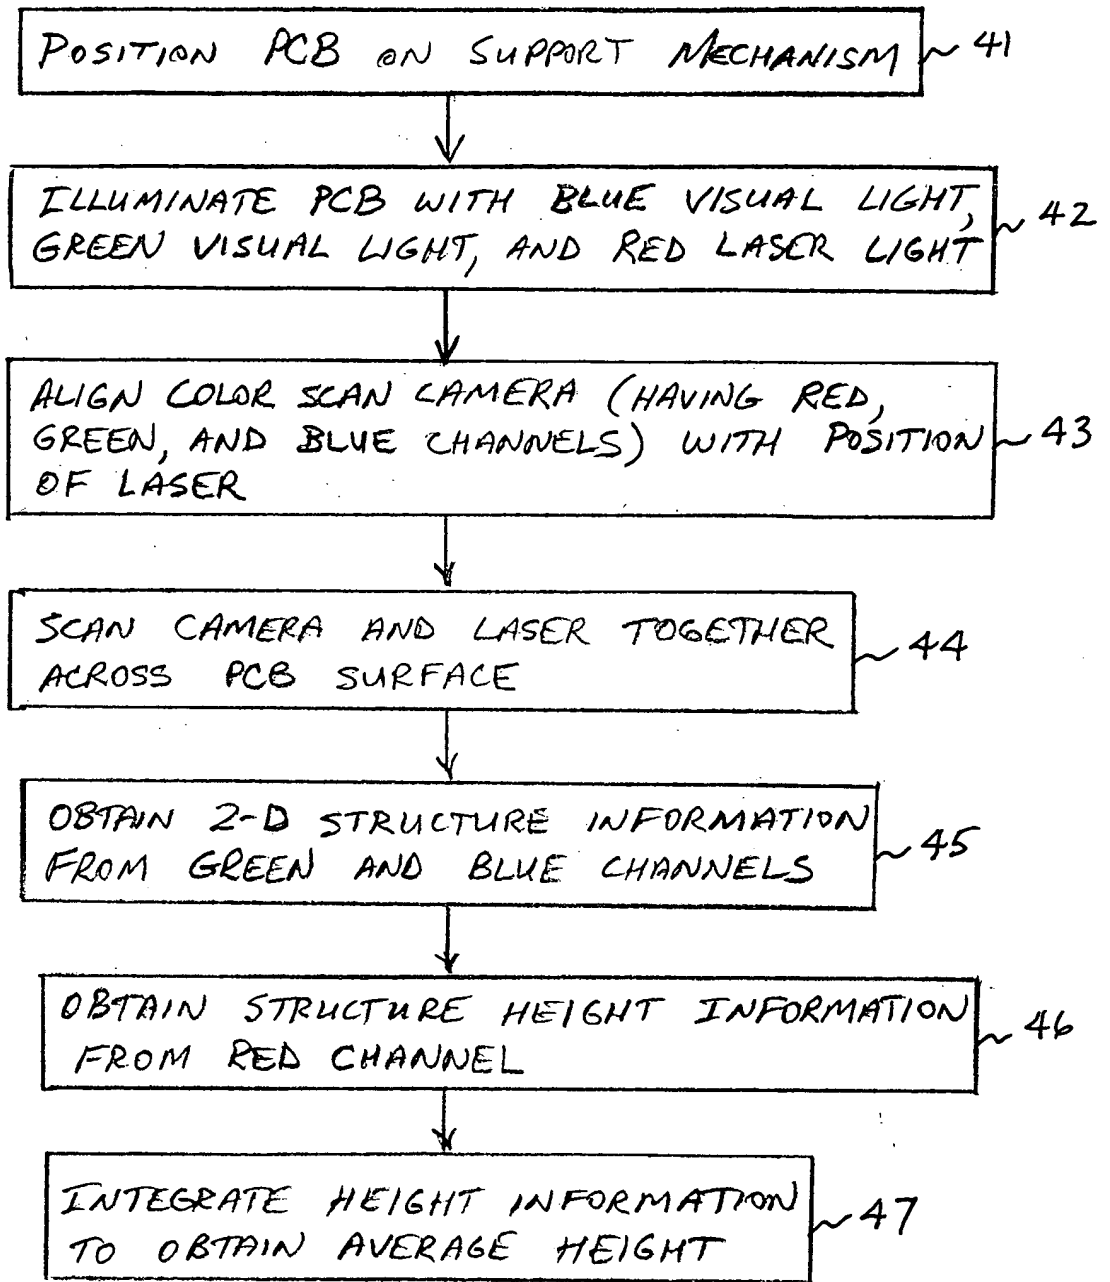 POSITION PCB ON SUPPORT MECHANISM 41
ILLUMINATE PCB WITH BLUE VISUAL LIGHT,
GREEN VISUAL LIGHT, AND RED LASER LIGHT 42
ALIGN COLOR SCAN CAMERA (HAVING RED,
GREEN, AND BLUE CHANNELS) WITH POSITION 43
OF LASER
SCAN CAMERA AND LASER TOGETHER
ACROSS PCB SURFACE 44
OBTAIN 2-D STRUCTURE INFORMATION
FROM GREEN AND BLUE CHANNELS 45
OBTAIN STRUCTURE HEIGHT INFORMATION
FROM RED CHANNEL 46
INTEGRATE HEIGHT INFORMATION
TO OBTAIN AVERAGE HEIGHT 47